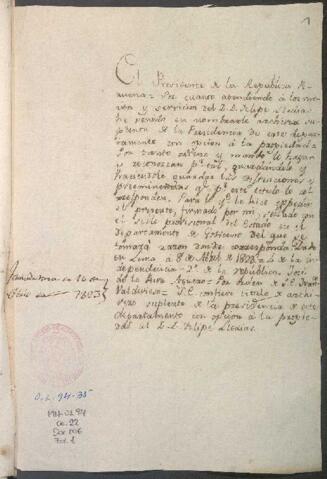 1
El Presidente de la Republica Peruana = Por cuanto atendiendo à los meritos
y servicios del D. D. Felipe Llosias
he venido en nombrarle archivero suplente
de la Presidencia de este departamento
con opcion à la propiedad =
Por tanto ordeno y mando le hagan
y reconozcan p.r tal, guardandole y
haciendole guardar las distinciones y
preeminencias q.e p.r este titulo le corresponden.
Para lo q.e le hice expedir
el presente, firmado por mi, sellado con
el Sello provisional del Estado en el
Departamento de Gobierno del que se
tomarà razon donde corresponda. Dado
en Lima à 8 de Abril de 1823 = 4.o de la Independencia
= 2.o de la republica. José
de la Riva Aguero = Por orden de S. E. Fran.co
Valdivieso = S. E. confiere titulo de archivero
suplente de la presidencia de este
departamento con opcion à la propiedad
al D. D. Felipe Llosias
O.L. 94-35
MH-OL 94
Ca. 22
Doc 106
Fol. 1